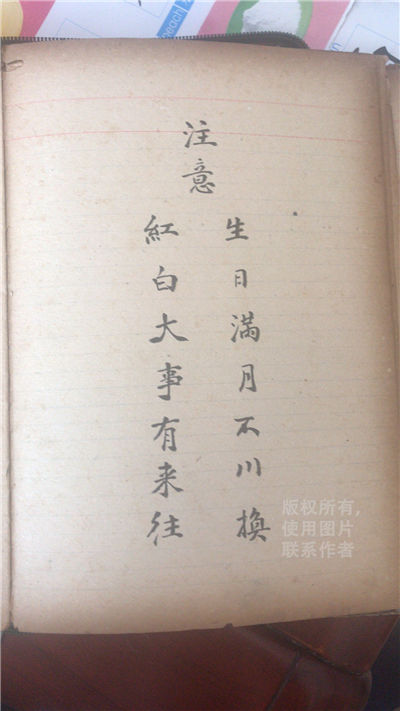 注意
生日满月不川换
紅白大事有来往
版权所有,
使用图片
联系作者